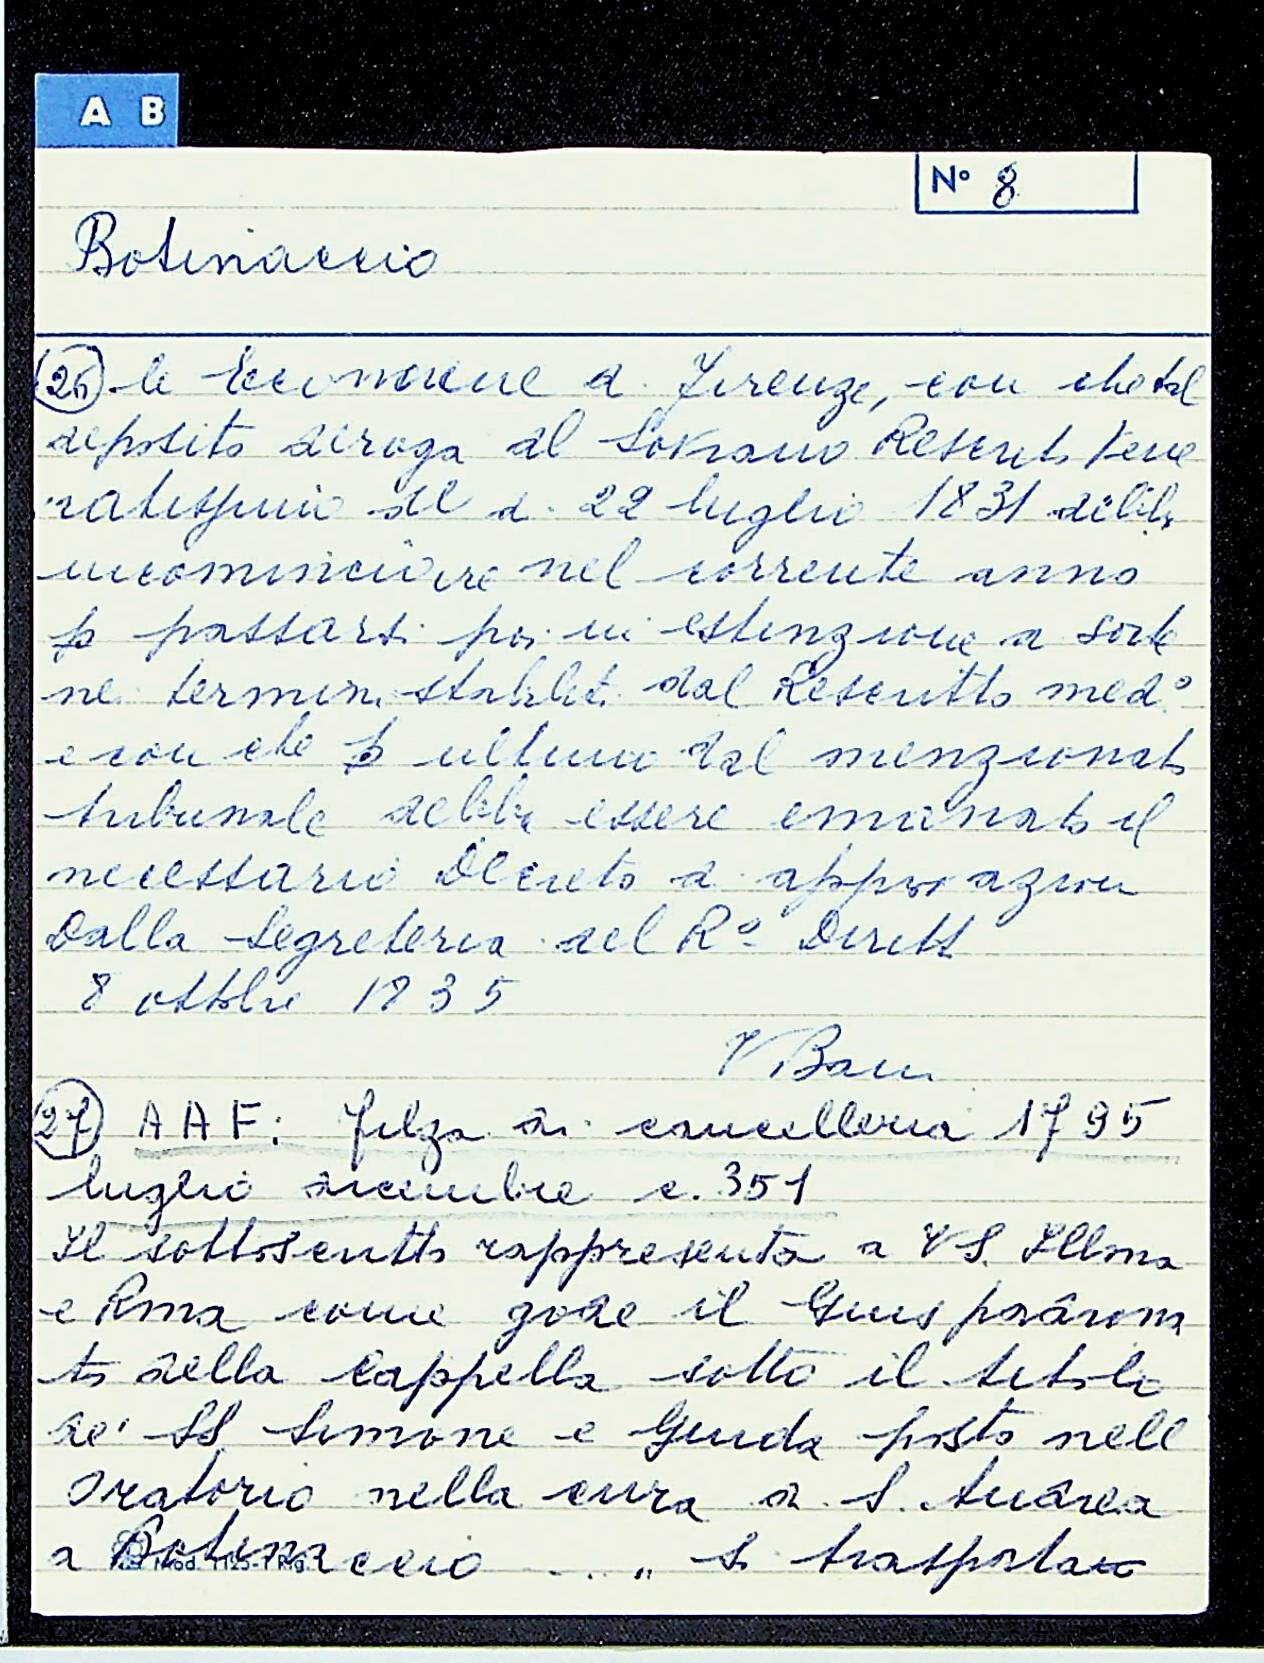 A B
N° 8
Botinaccio
26 le Economiche di Firenze, con che tal
deposito deroga al Sovrano Rescritto Vene
ratissimo del dì 22 luglio 1831 debba
incominciare nel corrente anno
p passarsi poi in estinzione a sorte
nei termini stabiliti dal Rescritto med°
e con che p ultimo dal menzionato
tribunale debba essere emanato il
necessario Decreto di approvazione
Dalla Segreteria del R° Diritt
8 ottobre 1835
V Bani
27 A A F: Filza di cancelleria 1795
luglio dicembre c. 351
Il sottoscritto rappresenta a VS. Illma
e Rma come gode il Gius padrona
to della Cappella sotto il titolo
de' SS Simone e Giuda posto nell
oratorio nella cura di S. Andrea
a Botinaccio .... si trasportato